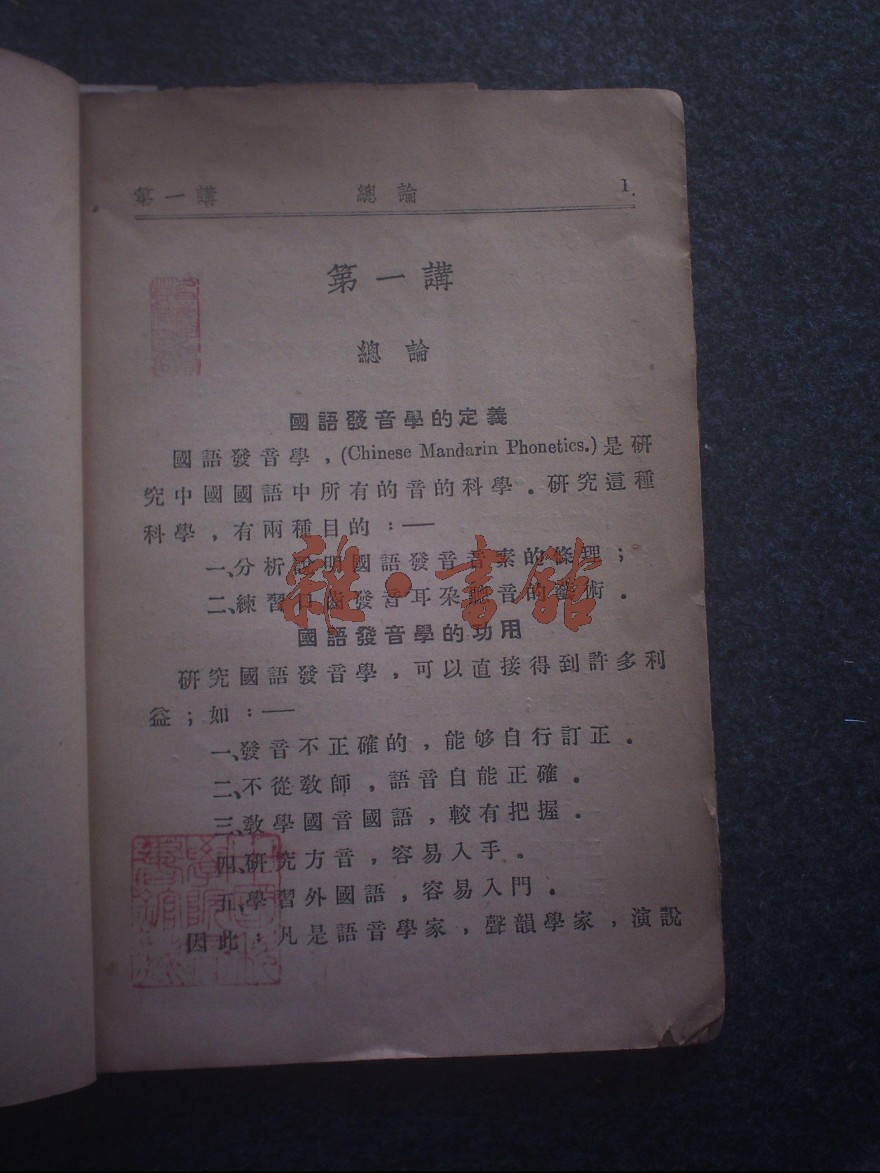 第一講 總論 1.
第一講
總論
國語發音學的定義
國語發音學，(Chinese Mandarin Phonetics.)是研
究中國國語中所有的音的科學．研究這種
科學，有兩種目的：——
一、分析說明國語發音音素的條理；
二、練習口齒發音耳朶聽音的藝術．
雜·書館
國語發音學的功用
研究國語發音學，可以直接得到許多利
益；如：——
一、發音不正確的，能够自行訂正．
二、不從敎師，語音自能正確．
三、敎學國音國語，較有把握．
四、研究方音，容易入手．
五、學習外國語，容易入門．
因此，凡是語音學家，聲韻學家，演說